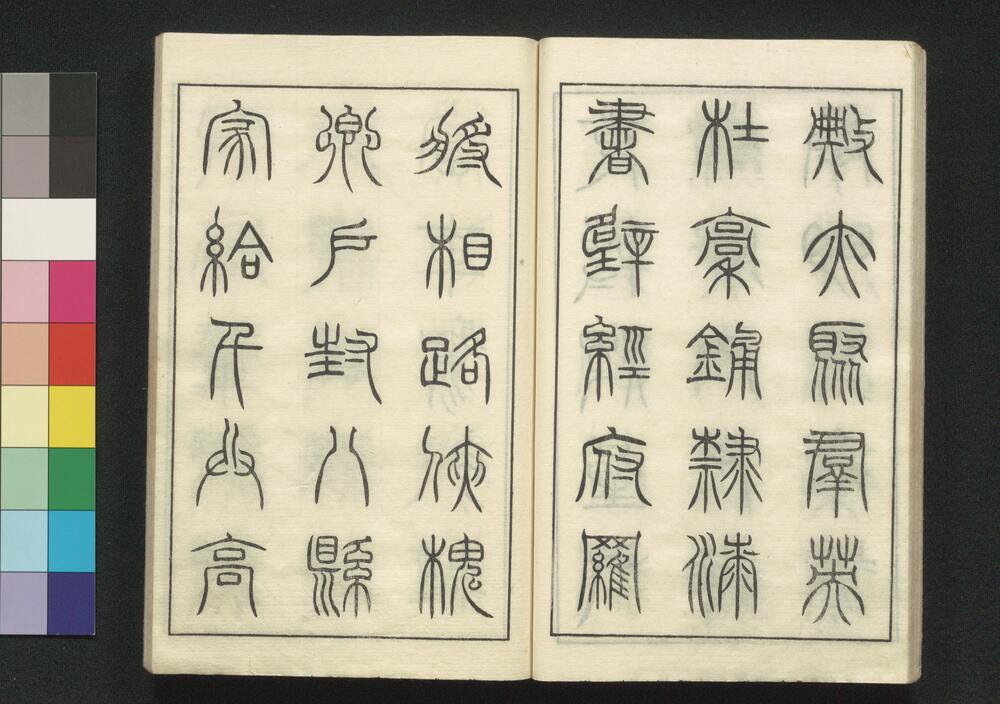 典亦聚群英
杜稾鍾隸漆
書壁經府羅
將相路俠槐
卿戶封八縣
家給千兵高